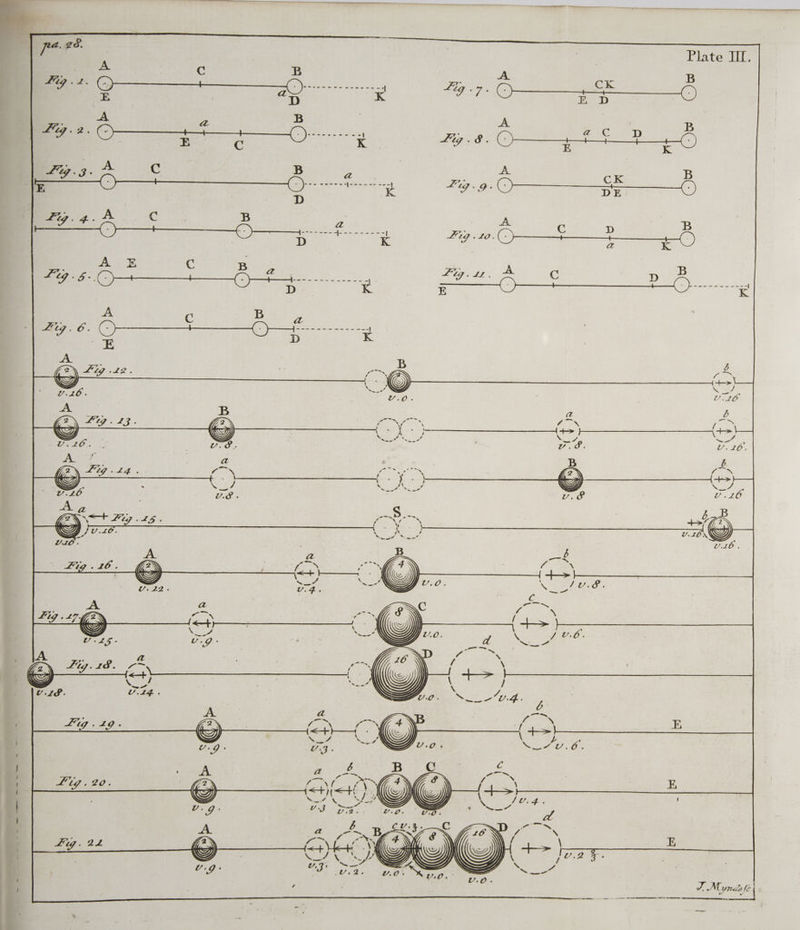 pa. 28.
Plate III.
A C B
Fig. 1.
E a D K
A a B
Fig. 2.
E C K
Fig. 3. A C B a
E D K
Fig. 4. A C B a
D K
A E C B a
Fig. 5.
D K
A C B a
Fig. 6.
E D K
A CK B
Fig. 7.
E D
A a C D B
Fig. 8.
E K
A CK B
Fig. 9.
D E
A C D B
Fig. 10.
a K
Fig. 11. A C D B
E K
A B b
2 Fig. 12. 2
v. 16. v. 0. v. 16
A B a b
2 Fig. 13. 2
v. 16. v. 8. v. 8. v. 16.
A a B b
2 Fig. 14. 2
v. 16 v. 8. v. 8 v. 16
A a S b B
2 Fig. 15. 2
v. 16. v. 16
v. 16. v. 16.
A a B b
Fig. 16. 2 4
v. 12. v. 4. v. 0. v. 8.
A a C c
Fig. 17. 2 8
v. 15. v. 9. v. 0. v. 6.
A a D d
2 Fig. 18. 16
v. 18. v. 14. v. 0. v. 4.
A a B b E
Fig. 19. 2 4
v. 9. v. 3. v. 0. v. 6.
A a b B C c E
Fig. 20. 2 4 8
v. 9. v. 3 v. 2. v. 0. v. 0. v. 4.
A a b B c v. 3. C D d E
Fig. 21 2 4 8 16
v. 9. v. 3. v. 2. v. 0. v. 0. v. 0. v. 2 2/3.
J. Mynde sc.